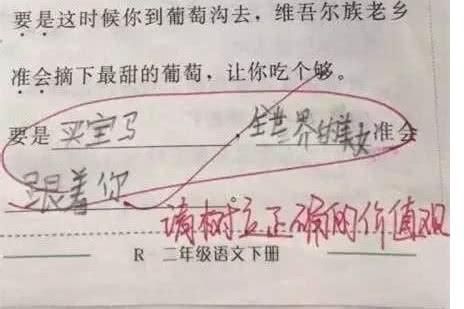 要是这时候你到葡萄沟去，维吾尔族老乡
准会摘下最甜的葡萄，让你吃个够。
要是买宝马，全世界的美女准会
跟着你。
请树立正确的价值观
R 二年级语文下册